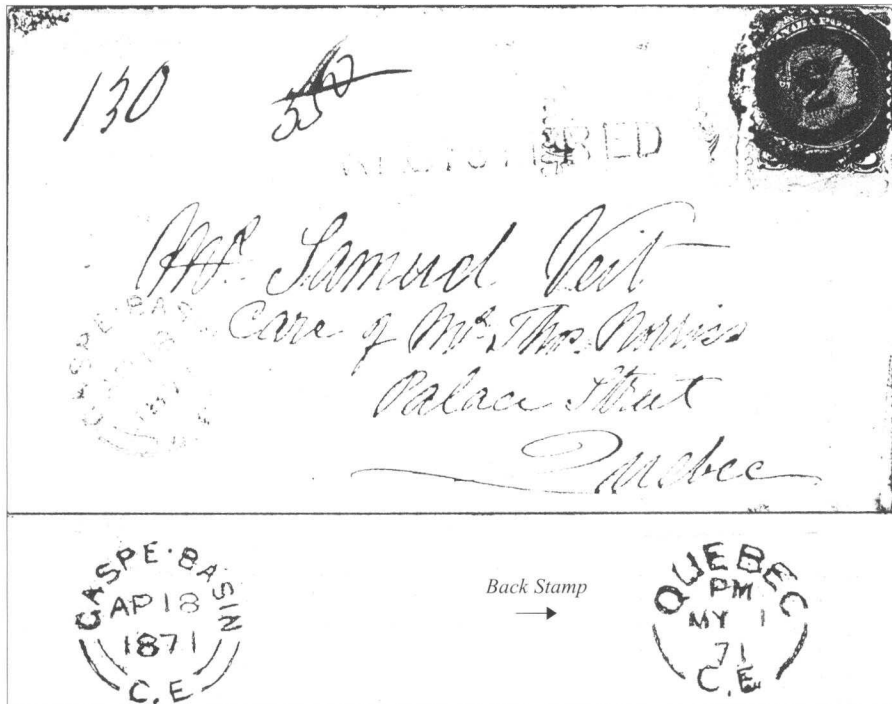 130
350
REGISTERED
2
Mr. Samuel Veit
Care of Mr. Thos. Norriss
Palace Street
Quebec
GASPE·BASIN
1871
C.E
GASPE·BASIN
AP 18
1871
C.E
Back Stamp
→
QUEBEC
PM
MY 1
71
C.E